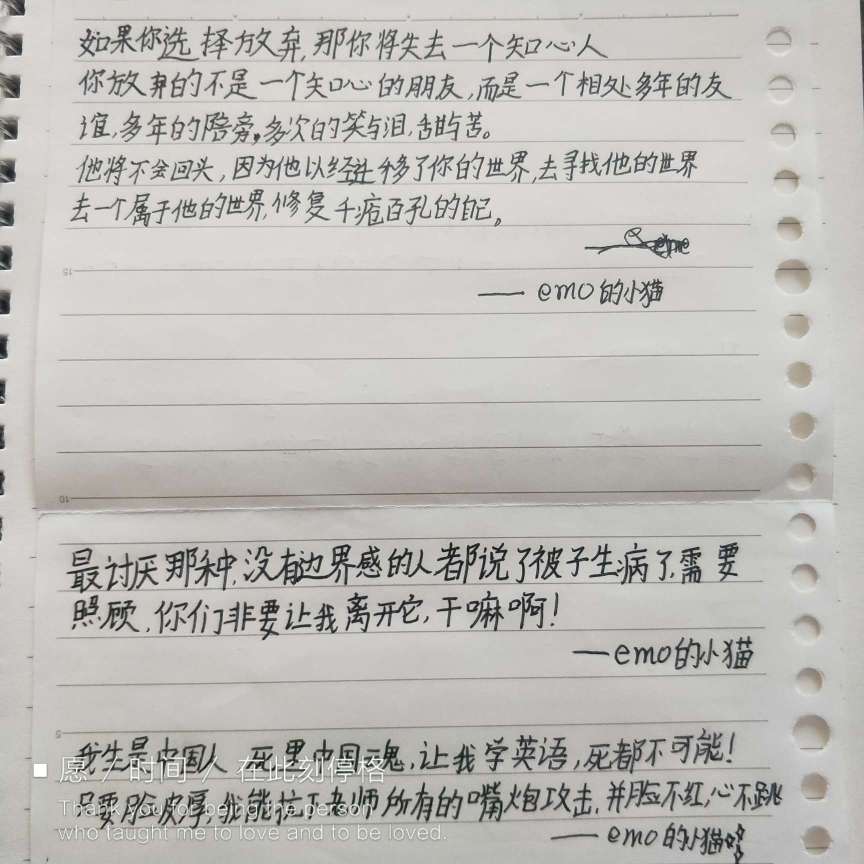 如果你选择放弃,那你将失去一个知心人
你放弃的不是一个知心的朋友,而是一个相处多年的友
谊,多年的陪旁,多次的笑与泪,甜与苦。
他将不会回头,因为他以经迁移了你的世界,去寻找他的世界
去一个属于他的世界,修复千疮百孔的自己。
15
—— emo的小猫
10
最讨厌那种,没有边界感的人都说了被子生病了,需要
照顾,你们非要让我离开它,干嘛啊!
——emo的小猫
5
我生是中国人 死是中国魂,让我学英语,死都不可能!
愿 / 时间 / 在此刻停格
只要脸皮厚,我能接下老师所有的嘴炮攻击,并脸不红,心不跳
Thank you for being the person
who taught me to love and to be loved.
——emo的小猫